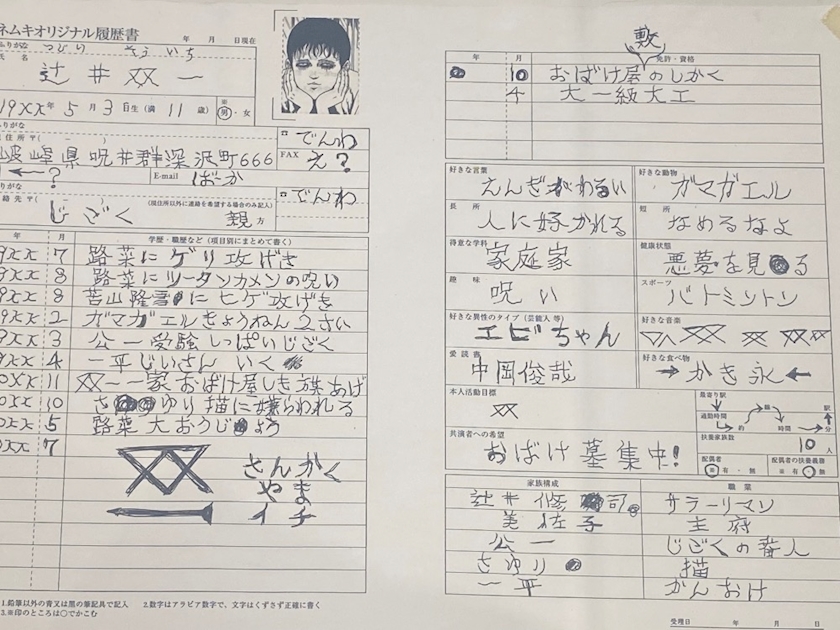 ネムキオリジナル履歴書
年 月 日現在
ふりがな つじい そう いち
氏名
辻 井 双 一
19XX年 5月 3日生 (満 11 歳)
※
男・女
ふりがな
現住所 〒( - )
岐阜県呪井群深沢町666
←?
E-mail ばーか
☎ でんわ
FAX え?
ふりがな
連絡先 〒( - )
(現住所以外に連絡を希望する場合のみ記入)
じごく
親 方
☎ でんわ
年 月 学歴・職歴など(項目別にまとめて書く)
9XX 7 路菜にゲリ攻げき
9XX 8 路菜にツータンカメンの呪い
9XX 8 苦山隆 に ヒゲ攻げき
9XX 2 ガマガエルきょうねん2さい
9XX 3 公一受験しっぱいじごく
9XX 4 一平じいさん いく
0XX 11 双一一家おばけ屋しき旗あげ
0XX 10 さゆり 描に嫌られれる
0XX 5 路菜 大おうじょう
0XX 7
さんかく
やま
イチ
1.鉛筆以外の青又は黒の筆記具で記入 2.数字はアラビア数字で、文字はくずさず正確に書く
3.※印のところは○でかこむ
敷
年 月 免許・資格
10 おばけ屋のしかく
4 大一級大工
好きな言葉
えんぎがわるい
好きな動物
ガマガエル
長所
人に好かれる
短所
なめるなよ
得意な学科
家庭家
健康状態
悪夢を見る
趣味
呪い
スポーツ
バトミントン
好きな異性のタイプ(芸能人等)
エビちゃん
好きな音楽
愛読書
中岡俊哉
好きな食べ物
→かき永←
本人活動目標
最寄り駅
駅
通勤時間
約 時間 分
共演者への希望
おばけ墓集中!
扶養家族数
10 人
配偶者
※ 有・無
配偶者の扶養義務
※ 有・無
家族構成 職業
辻井修司。 サラーリマン
美佐子 主府
公一 じごくの番人
さゆり 描
一平 かんおけ
受理日 年 月 日